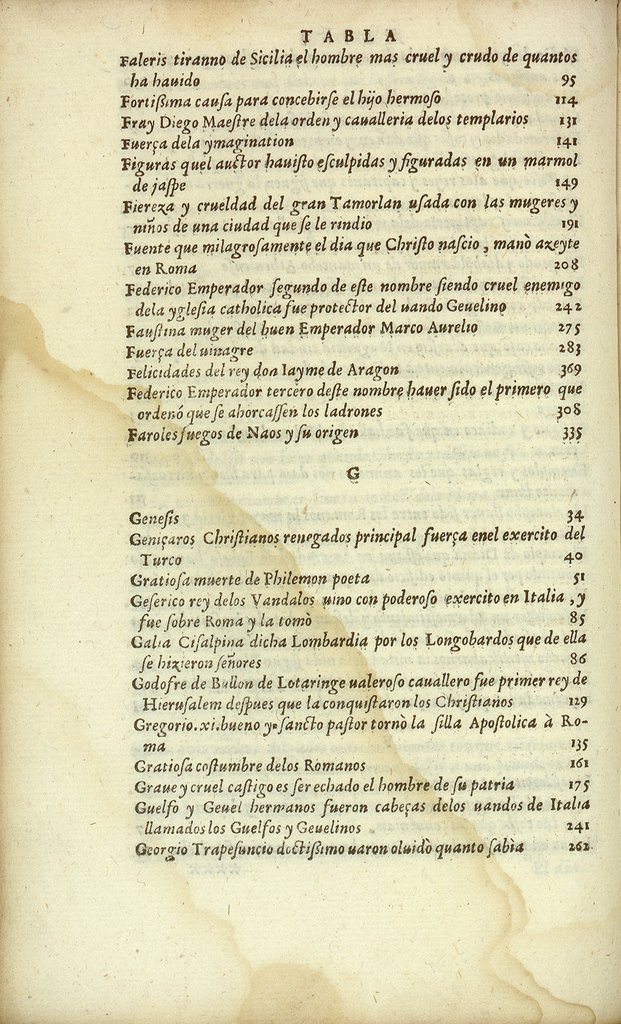 TABLA
Faleris tiranno de Sicilia el hombre mas cruel y crudo de quantos
ha hauido 95
Fortißima cauſa para concebirſe el hijo hermoſo 114
Fray Diego Maeſtre dela orden y caualleria delos templarios 131
Fuerça dela ymagination 141
Figuras quel auctor hauiſto eſculpidas y figuradas en un marmol
de jaſpe 149
Fiereza y crueldad del gran Tamorlan uſada con las mugeres y
niños de una ciudad que ſe le rindio 191
Fuente que milagroſamente el dia que Chriſto naſcio, manò azeyte
en Roma 208
Federico Emperador ſegundo de eſte nombre ſiendo cruel enemigo
dela ygleſia catholica fue protector del uando Geuelino 242
Fauſtina muger del buen Emperador Marco Aurelio 275
Fuerça del uinagre 283
Felicidades del rey don Iayme de Aragon 369
Federico Emperador tercero deſte nombre hauer ſido el primero que
ordenó que ſe ahorcaſſen los ladrones 308
Faroles fuegos de Naos y ſu origen 335
G
Geneſis 34
Geniçaros Chriſtianos renegados principal fuerça enel exercito del
Turco 40
Gratioſa muerte de Philemon poeta 51
Geſerico rey delos Vandalos uino con poderoſo exercito en Italia, y
fue ſobre Roma y la tomò 85
Galia Ciſalpina dicha Lombardia por los Longobardos que de ella
ſe hizieron ſeñores 86
Godofre de Bullon de Lotaringe ualeroſo cauallero fue primer rey de
Hieruſalem deſpues que la conquiſtaron los Chriſtianos 129
Gregorio.xi.bueno y ſancto paſtor tornò la ſilla Apoſtolica à Ro-
ma 135
Gratioſa coſtumbre delos Romanos 161
Graue y cruel caſtigo es ſer echado el hombre de ſu patria 175
Guelfo y Geuel hermanos fueron cabeças delos uandos de Italia
llamados los Guelfos y Geuelinos 241
Georgio Trapeſuncio doctißimo uaron oluidò quanto ſabìa 262